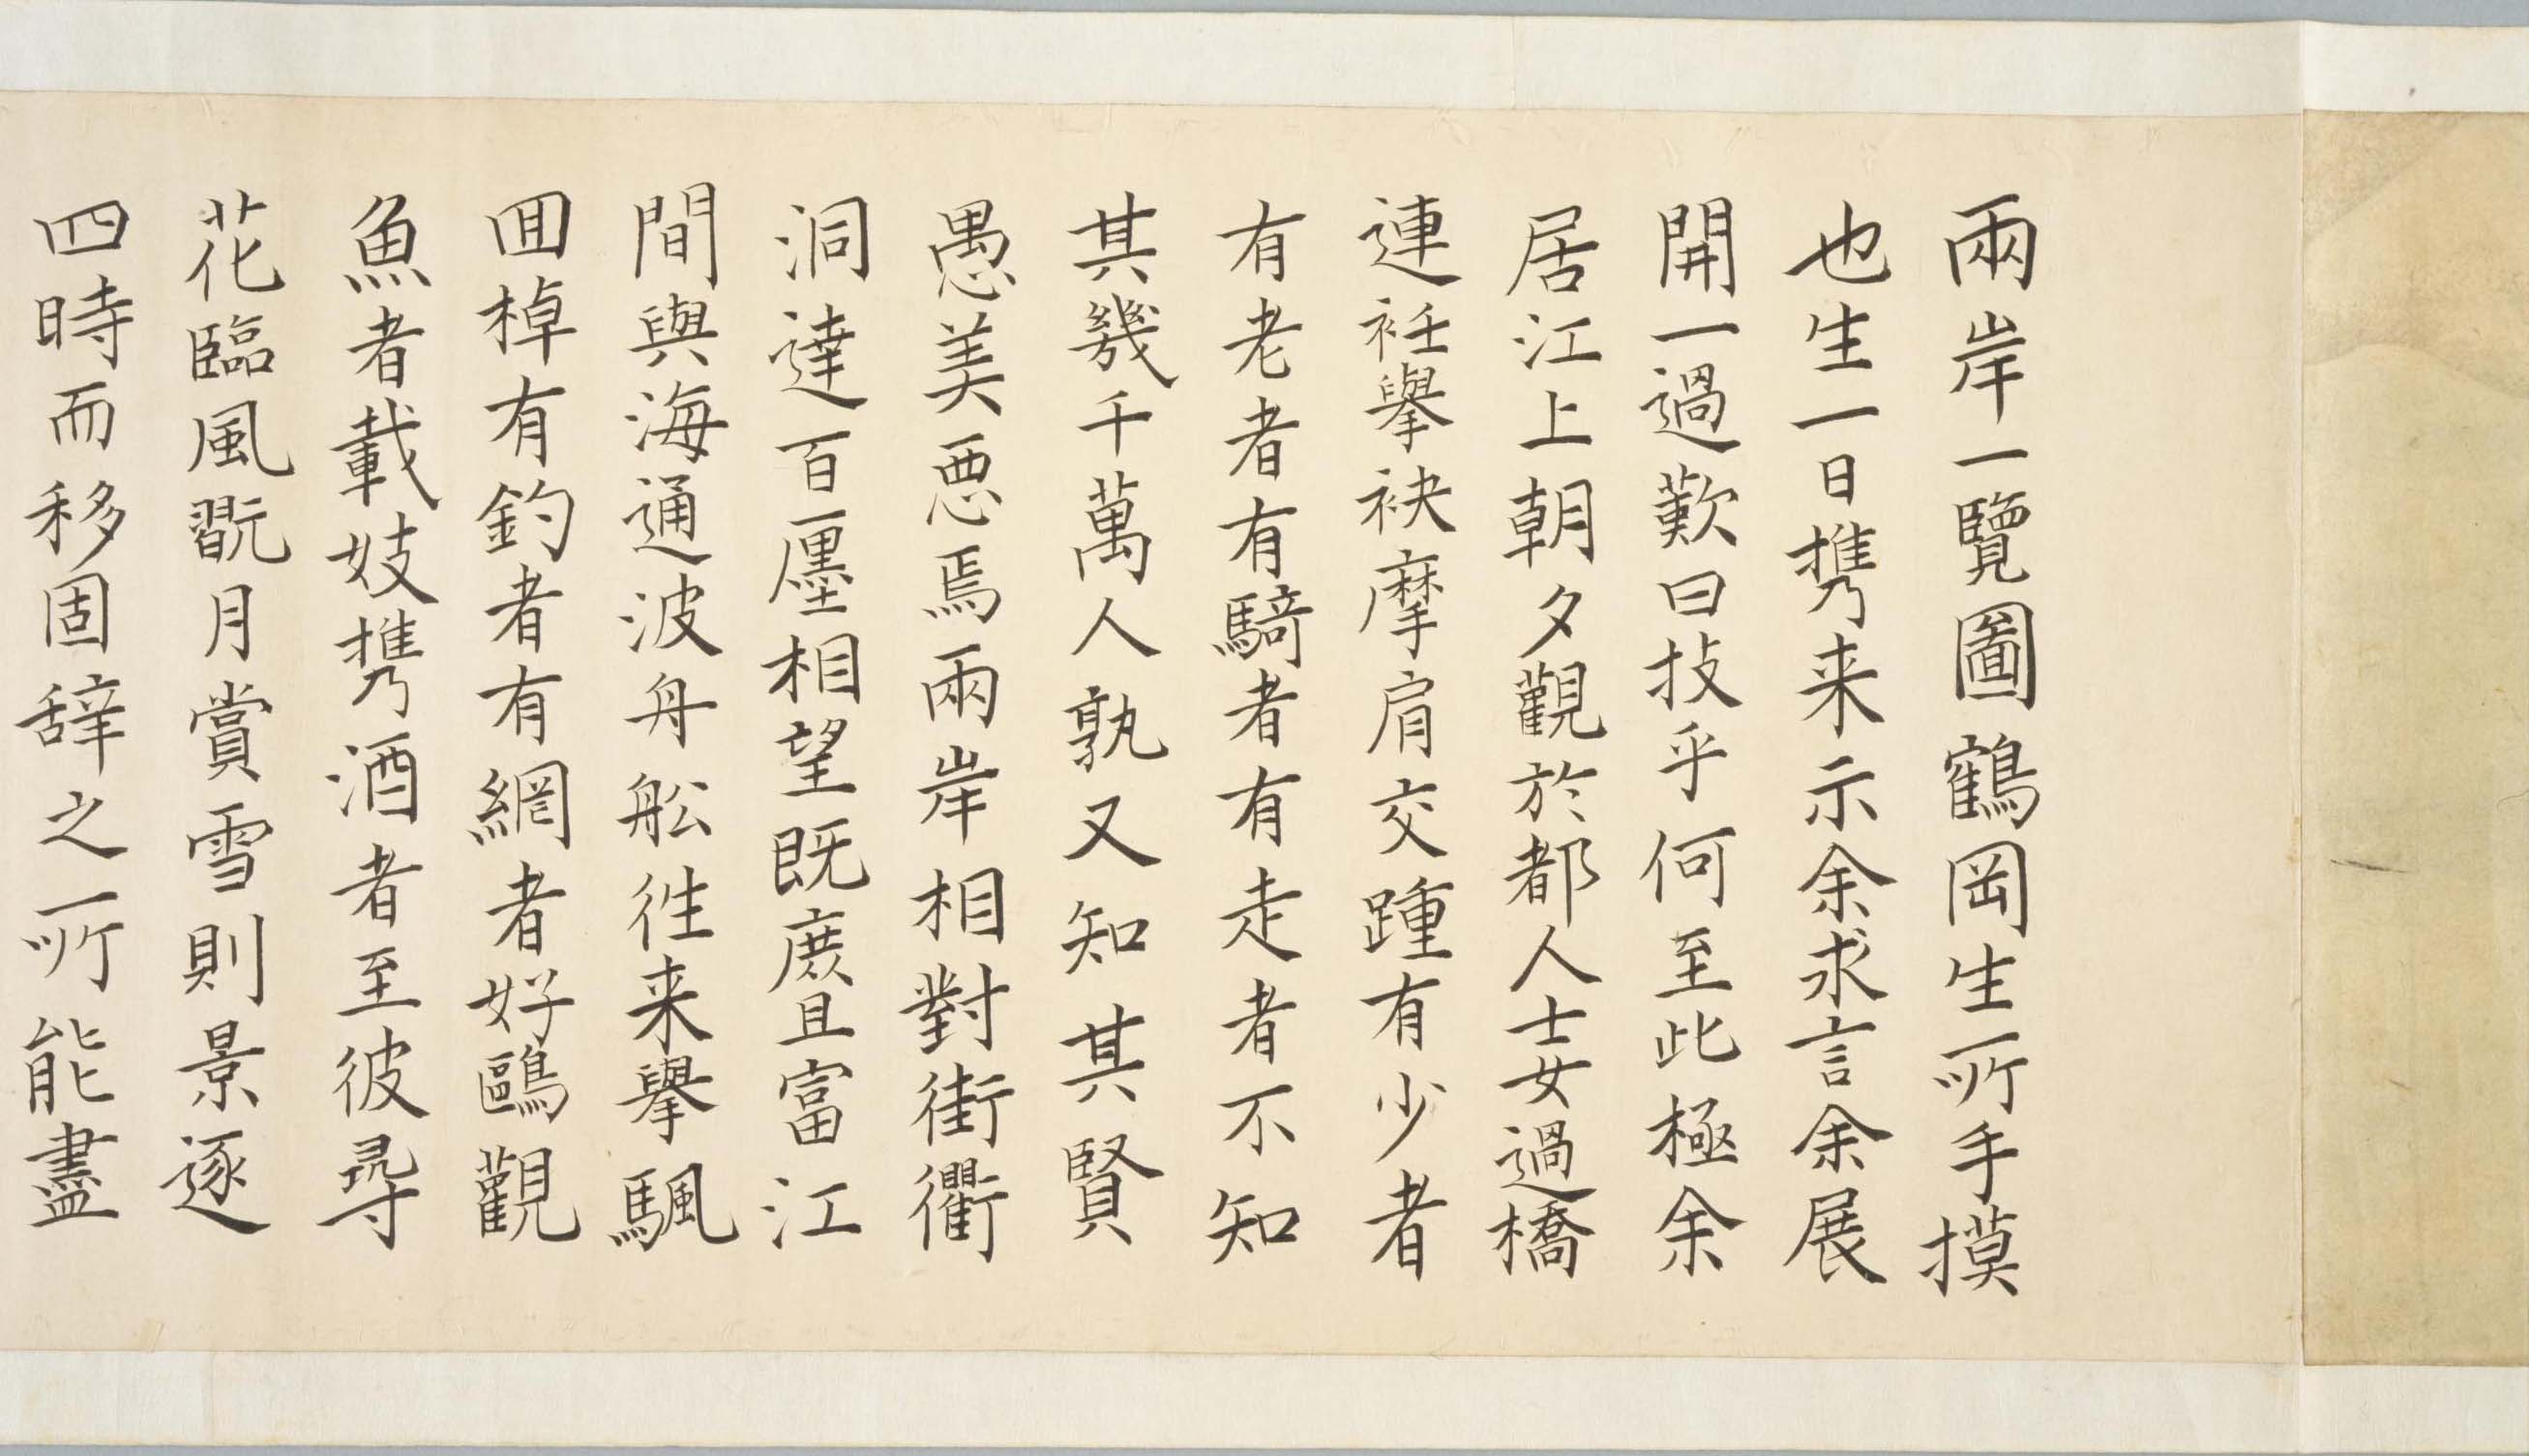 兩岸一覽圖鶴岡生所手摸
也生一日携来示余求言余展
開一過歎曰技乎何至此極余
居江上朝夕觀於都人士女過橋
連衽擧袂摩肩交踵有少者
有老者有騎者有走者不知
其幾千萬人孰又知其賢
愚美惡焉兩岸相對街衢
洞達百廛相望既庶且富江
間與海通波舟舩徃来擧颿
囬棹有釣者有網者好鷗觀
魚者載妓携酒者至彼尋
花臨風翫月賞雪則景逐
四時而移固辞之所能盡